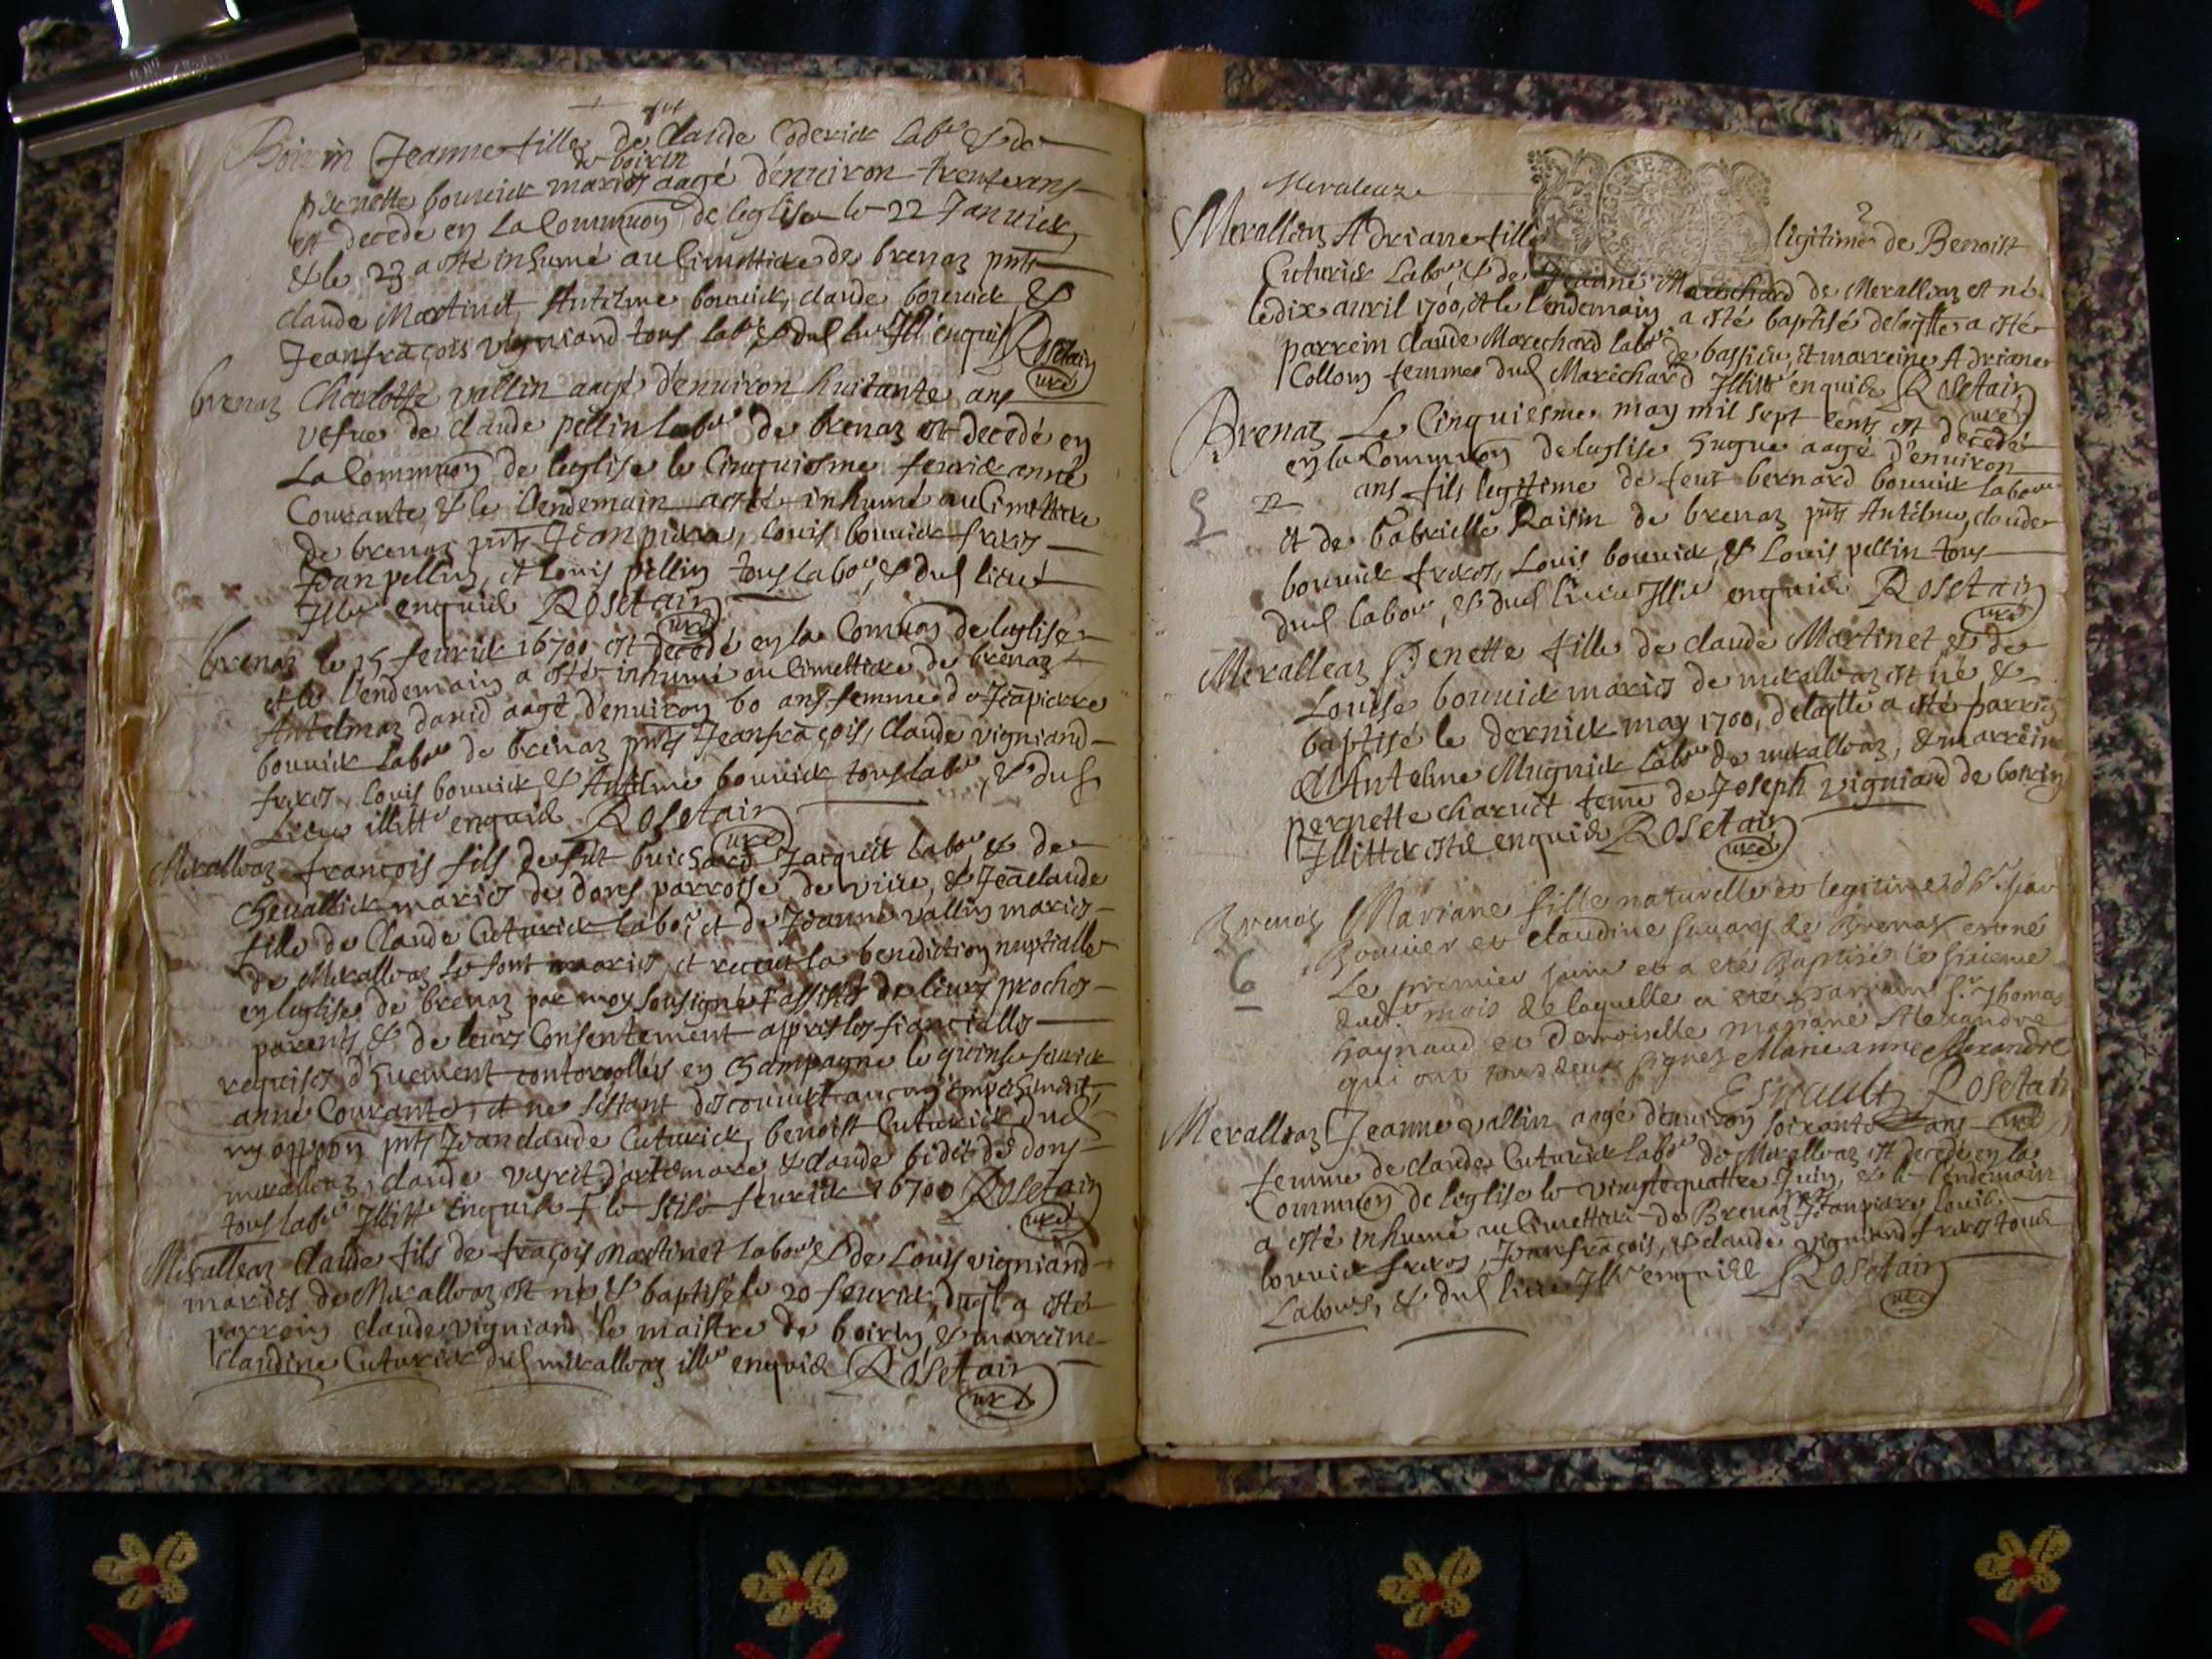 fut
Boirin Jeanne fille de Claude Coderick labr & de
de boirin
pernette bouuick mariés aagé d'enuiron trente ans
est decede en La Commuon de leglise le 22 Januick
& le 23 a esté inhumé au Cimettiere de brenaz pnts
claude Martinet, Antelme bouuick, claude bouuick &
Jeanfraçois vigniand tous labrs & dud lieu Illi enquis Rosetain
curé
brenaz Charlotte vallin aagé d'enuiron huitante ans
vefue de claude pellin labour de brenaz est decedé en
La Commuon de leglise le Cinquiesme feurick anné
Courante & le lendemain a esté inhumé au Cimettiere
de brenaz pnts Jeanpierre, louis bouuick freres
Jean pellin, et Louis pellin tous labour, & dud lieu
Illit enquis Rosetain
curé
brenaz le 15 feurick 16700 est decedé en la Comuon de leglise
et le l'endemain a esté inhumé au Cimettiere de brenaz
Antelmaz dauid aagé d'enuiron 60 ans femme de Jeapierre
bouuick labour de brenaz pnts Jeanfraçois, Claude vigniand
freres, Louis bouuick, & Antelme bouuick tous labour, & dud
Lieu illitt enquis Rosetain
curé
Meralleaz françois fils de fut Jacquet labour & de
Cheuallick mariés de dons parroisse de virie, & Jeaclaude
fille de Claude Cuturick labor, et de Jeanne vallin mariés
de Meralleaz se sont mariés, et receu la benediction nuptialle
en leglise de brenaz par moy sousigné assistés de leurs proches
parents & de leurs Consentement apprés les fiancialles
requises d'huement controollés en Champagne le quinse feurick
anné Courante, et ne s'estant descouuert aucun empeschement,
ny oppoon pnts Jeanclaude Cuturick, benoist Cuturick dud
meralleaz, claude veyret d'artemare, & claude bidet de dons
tous labour Illitt enquis & le seise feurick 16700 Rosetain
curé
Meralleaz Claude fils de fraçois Martinet labour & de Louise vigniand
mariés de Meralleaz est né, & baptisé le 20 feurick, duql a esté
parrein claude vigniand le maistre de boirin, & marreine
claudine Cuturick dud meralleaz illi enquis Rosetain
curé
2
Meraleaz
Meralleaz Adriane fille legitime de Benoist
Cuturick Labor, & de Jeanne Marechard de Merallieaz est né
le dix auril 1700, et le l'endemain a esté baptisé delaqlle a esté
parrein claude Marechard labor de bassieu, et marreine Adriane
Collomb femme dud Marechard Illitt enquis Rosetain
curé
Brenaz Le Cinquiesme may mil sept cents est decedé
en la Commuon de leglise hugue aagé d'enuiron
22 ans fils legitime de feut bernard bouuick labour
et de Gabrielle Raisin de brenaz pnts Antelme, claude
bouuick freres, Louis bouuick, & Louis pellin tous
dud labour, & dud lieu Illit enquis Rosetain
curé
Merallieaz Penette fille de claude Martinet & de
Louise bouuick mariés de merallieaz est né &
baptisé le dernick may 1700, delaqlle a esté parrein
Antelme Mugnick labor de merallieaz, & marreine
pernette charuet femme de Joseph vigniand de boirin
Illitt enquis Rosetain
curé
Brenaz Mariane fille naturelle et legitime de Sr
Bouuier et claudine sauary de Brenaz est né
6 Le premier juin et a ete Baptise le sixieme
dud mois de laquelle a ete parrain Sr Thomas
haynaud et Demoiselle mariane Alexandre
qui ont tous deux signez Marie anne Alexandre
Rosetain
curé
Merallieaz Jeanne vallin aagé d'enuiron soixante ans
femme de claude Cuturick labor de Merallieaz est decedé en la
Commuon de leglise le vingtequattre Juin, & le l'endemain
a esté inhumé au Cimettiere de Brenaz pnts Jeanpierre, Louis
bouuick freres, Jeanfraçois, & claude vigniand freres tous
Labours, & dud lieu Illit enquis Rosetain
curé